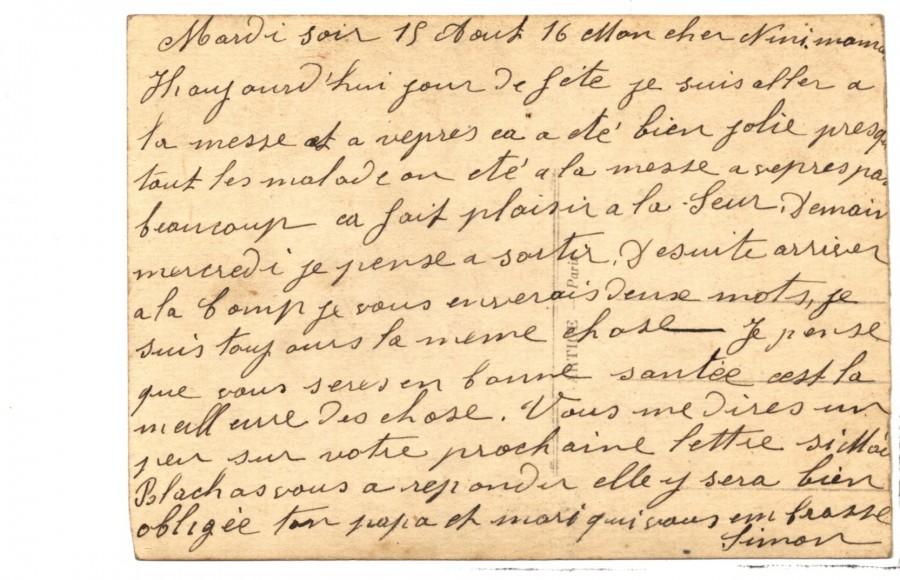 Mardi soir 15 Aout 16 Mon cher Nini. mama
aujourd'hui jour de fête je suis aller a
la messe et a vepres ca a été bien jolie presqu
tout les malade on été a la messe a vepres pa
beaucoup ca fait plaisir a la Seur. Demain
mercredi je pense a sortir. Desuite arriver
a la Comp je vous enverais deux mots, je
suis toujours la meme chose — Je pense
que vous seres en bonne santée cest la
meilleure des chose. Vous me dires un
peu sur votre prochaine lettre si
Blachas vous a reponder elle y sera bien
obligée ton papa et mari qui vous embrasse
Simon
ARTIGE Paris